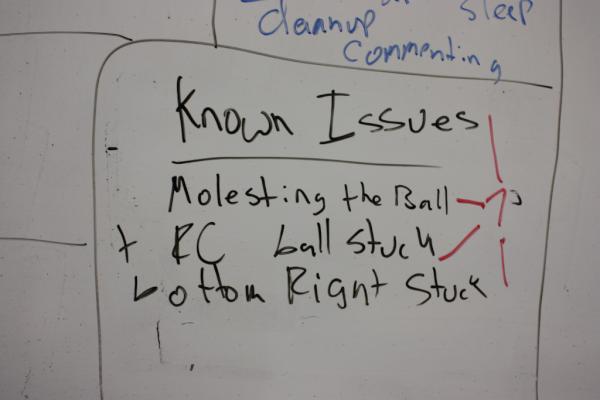 sleep
cleanup
commenting
Known Issues
Molesting the Ball
+ RC ball stuck
bottom Right Stuck